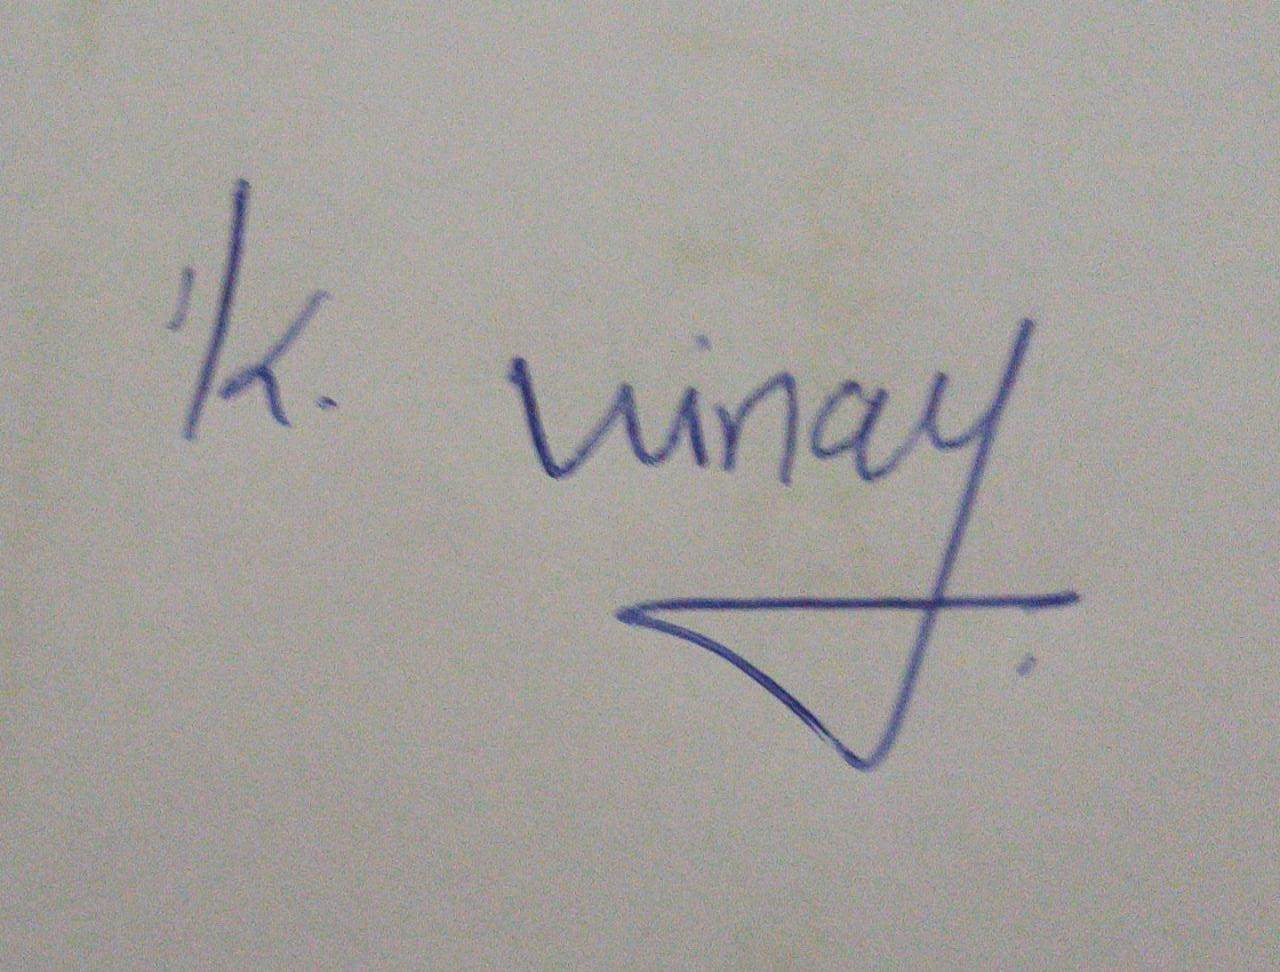 K. vinay